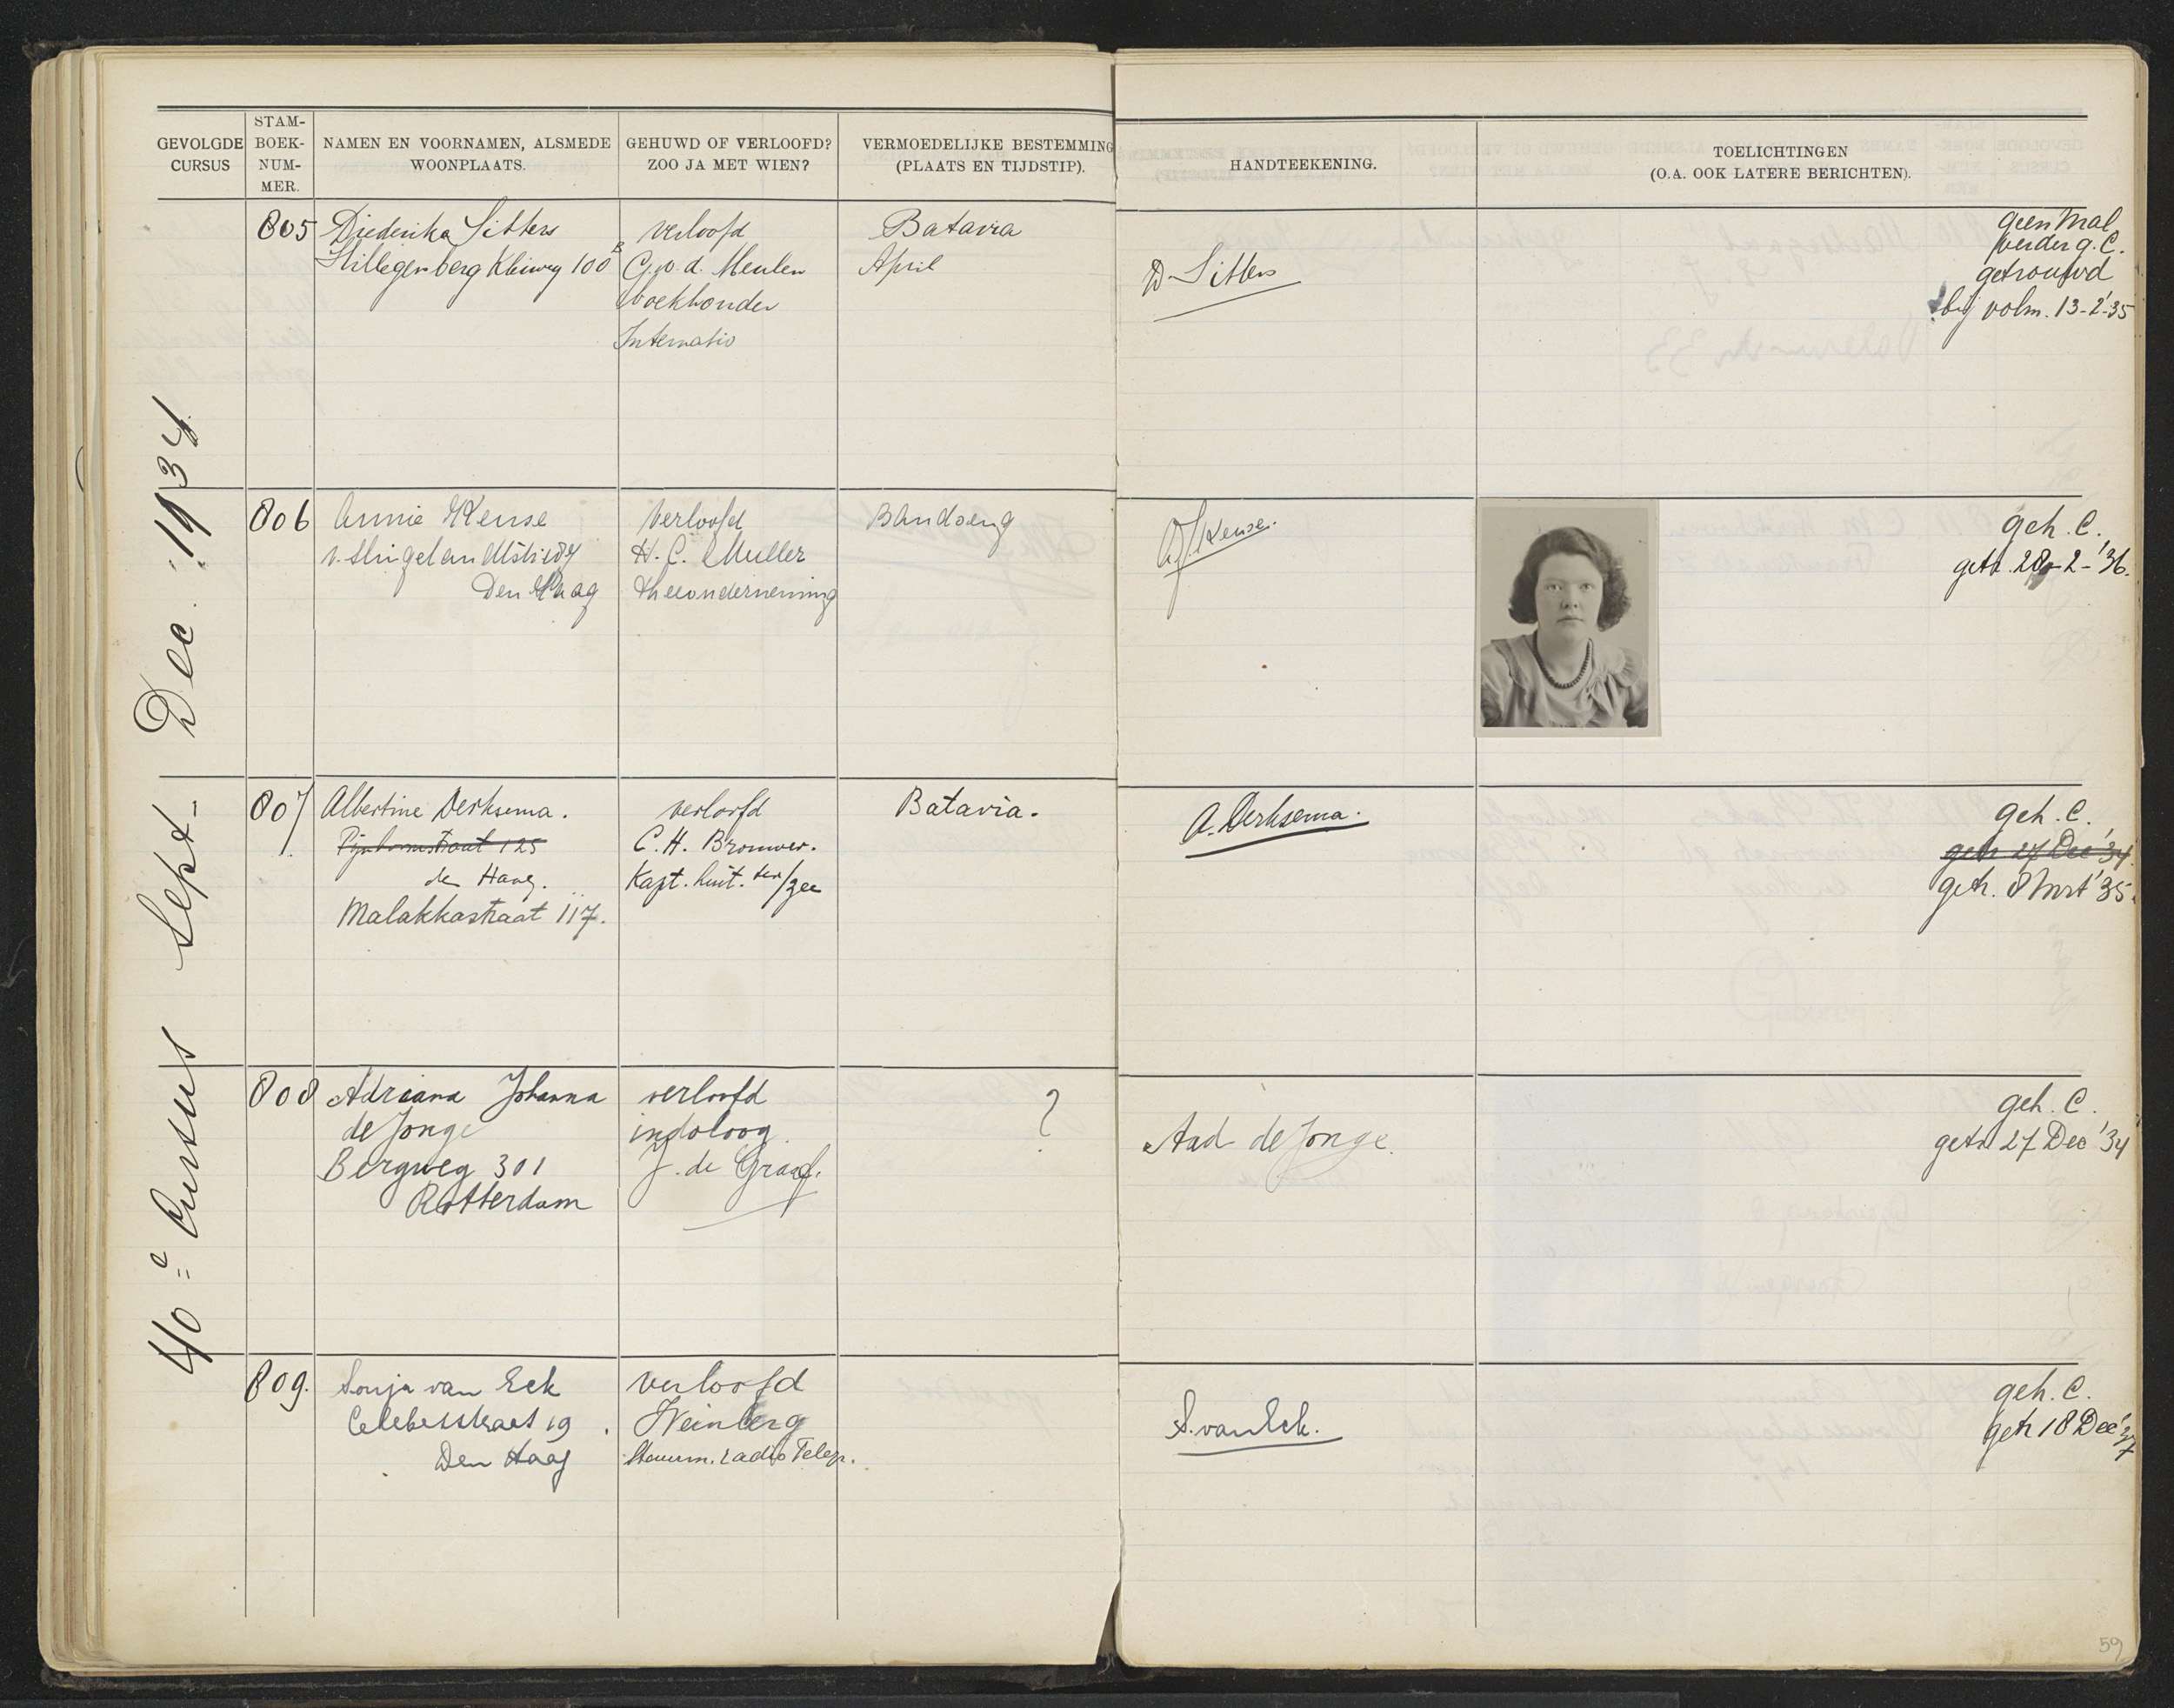 GEVOLGDE CURSUS
STAM-BOEK-NUM-MER.
NAMEN EN VOORNAMEN, ALSMEDE WOONPLAATS.
GEHUWD OF VERLOOFD? ZOO JA MET WIEN?
VERMOEDELIJKE BESTEMMING (PLAATS EN TIJDSTIP).
HANDTEEKENING.
TOELICHTINGEN (O.A. OOK LATERE BERICHTEN).
40e Cursus Sept - Dec. 1934
805
Diederika Sitters
Hillegersberg Kleiweg 100B
verloofd
G. v. d. Meulen
boekhouder
Internatio
Batavia
April
D Sitters
geen Mal
verder g. C.
getrouwd
bij volm. 13-2-'35
806
Annie Kense
v. Slingelandtstr
Den Haag
Verloofd
H. C. Muller
theeonderneming
Bandoeng
A.J. Kense.
geh. C.
getr. 28-2-'36.
807
Albertine Derksema.
125
den Haag.
Malakkastraat 117.
verloofd
C. H. Brouwer.
Kapt. luit. ter/zee
Batavia.
A. Derksema.
geh. C.
getr 27 Dec '34.
getr. 8 Mrt '35.
808
Adriana Johanna
de Jonge
Bergweg 301
Rotterdam
verloofd
indoloog
J. de Graaf.
?
Aad de Jonge.
geh. C.
getr 27 Dec '34
809.
Sonja van Eck
Celebesstraat 19.
Den Haag
Verloofd
Weinberg
radio Telegr.
S. van Eck.
geh. C.
getr 18 Dec '37
59